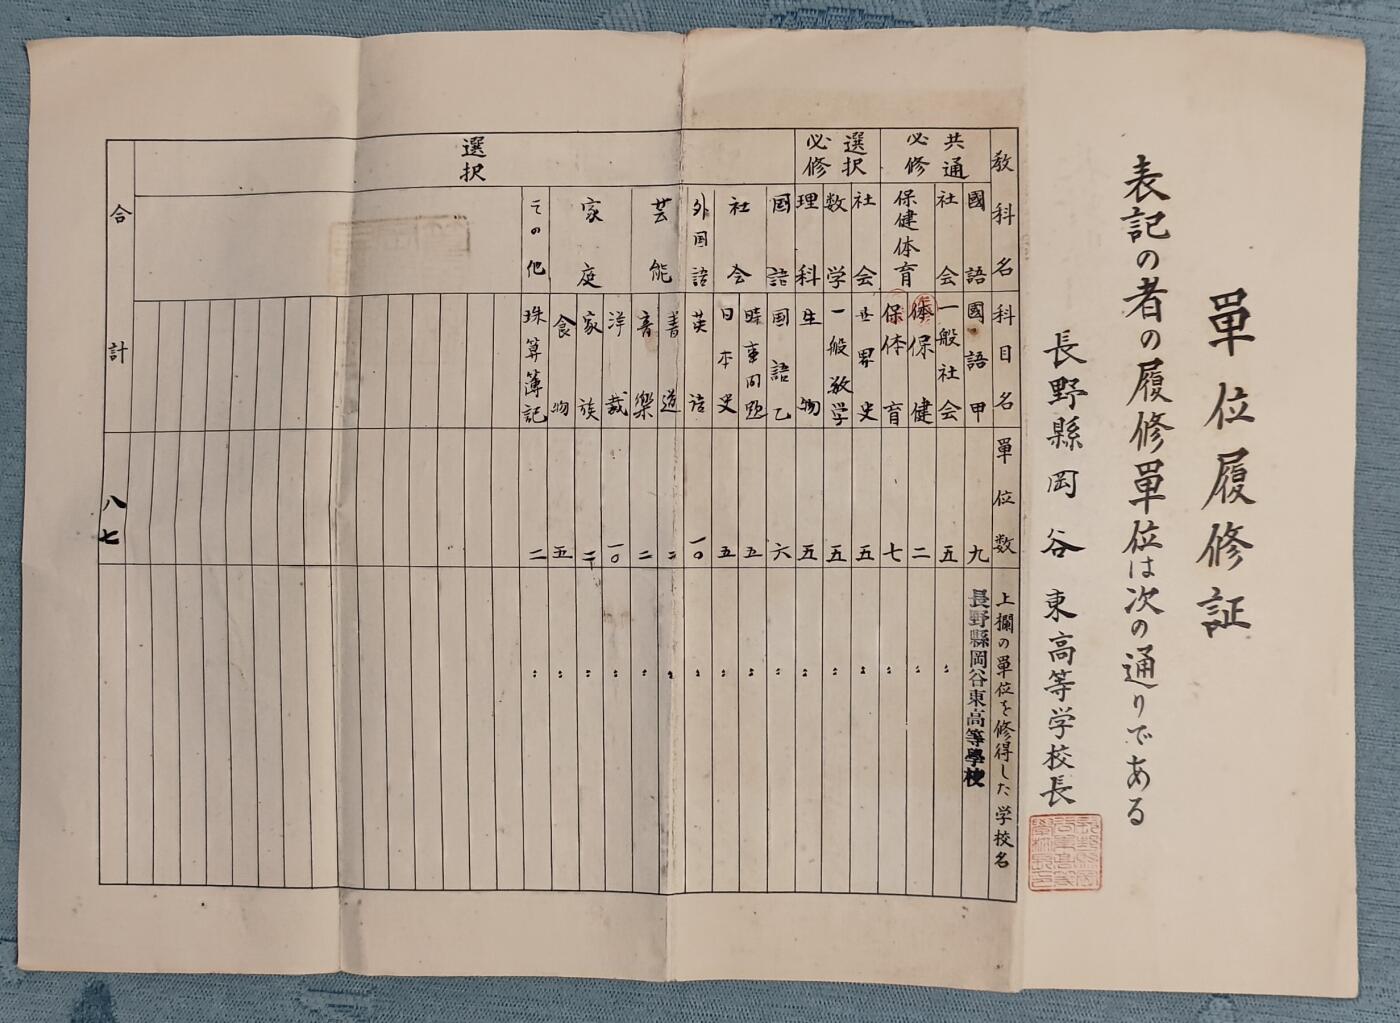 單位履修証
表記の者の履修單位は次の通りである
長野縣岡谷東高等学校長
教科名
科目名
單位数
上欄の單位を修得した学校名
共通必修
國語
國語甲
九
長野縣岡谷東高等學校
社会
一般社会
五
〃
保健体育
保健
二
保体育
七
〃
選択必修
社会
世界史
五
〃
数学
一般数学
五
〃
理科
生物
五
〃
選択
国語
国語乙
六
〃
社会
時事問題
五
〃
日本史
五
〃
外国語
英語
一〇
〃
芸能
書道
二
〃
音楽
二
〃
家庭
洋裁
一〇
〃
家族
二
〃
食物
五
〃
その他
珠算簿記
二
〃
合計
八七